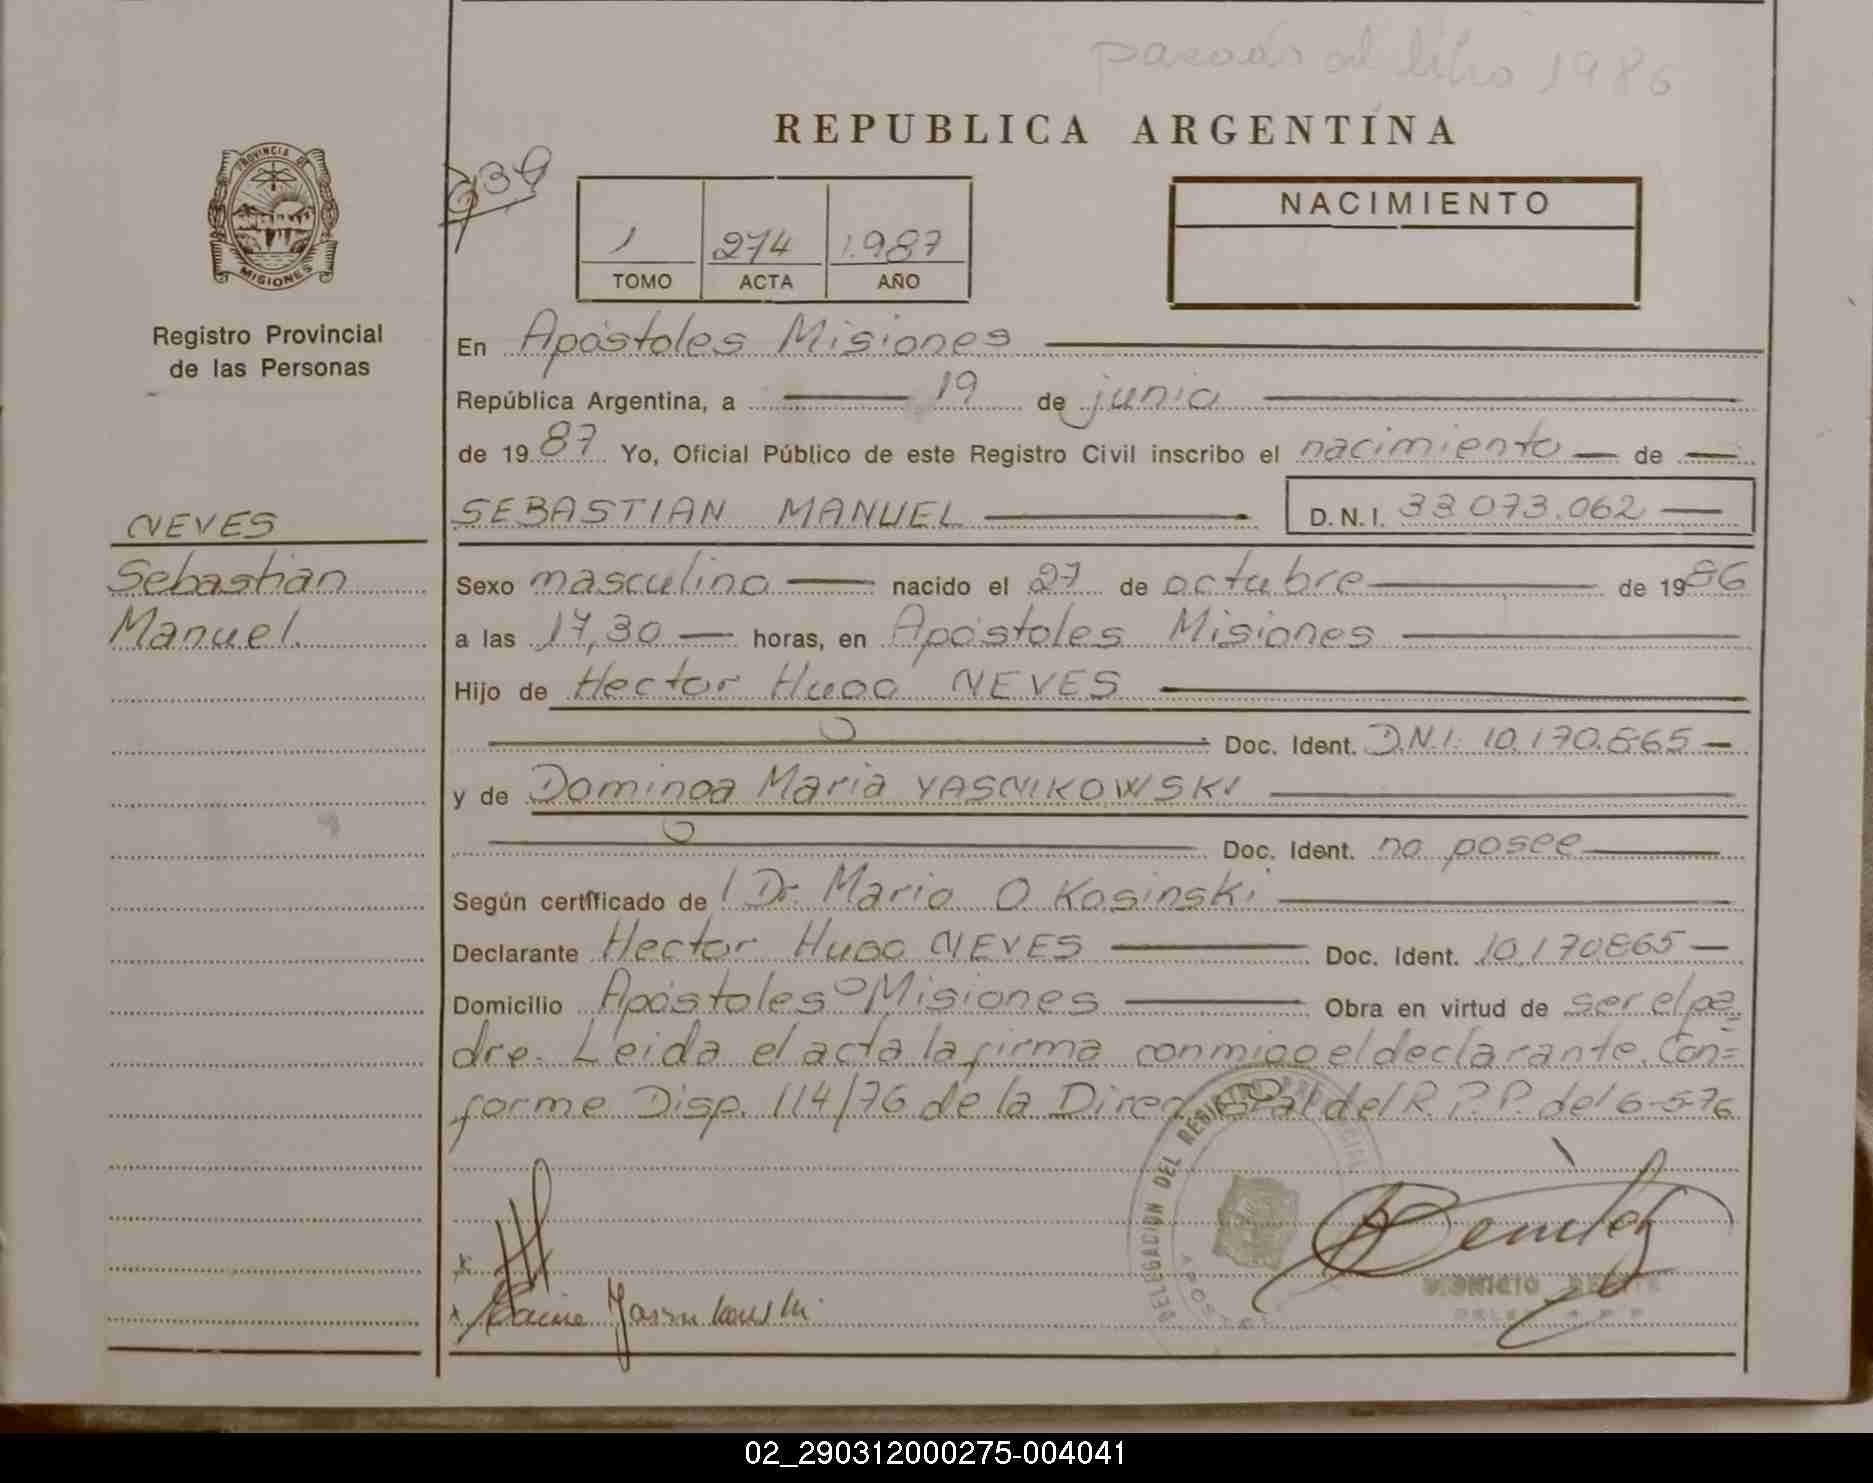 pasado al libro 1986
REPUBLICA ARGENTINA
939
NACIMIENTO
1 274 1.987
TOMO ACTA AÑO
PROVINCIA DE
MISIONES
Registro Provincial
de las Personas
En Apóstoles Misiones
República Argentina, a 19 de junio
de 1987 Yo, Oficial Público de este Registro Civil inscribo el nacimiento de
SEBASTIAN MANUEL D.N.I. 33.073.062
NEVES
Sebastián
Manuel.
Sexo masculino nacido el 27 de octubre de 1986
a las 17,30 horas, en Apóstoles Misiones
Hijo de Hector Hugo NEVES
Doc. Ident. D.N.I. 10.170.865
y de Dominga Maria YASNIKOWSKI
Doc. Ident. no posee
Según certificado de Dr. Mario O Kosinski
Declarante Hector Hugo NEVES Doc. Ident. 10.170865
Domicilio Apóstoles Misiones Obra en virtud de ser el pa
dre. Leida el acta la firma conmigo el declarante. Con=
forme Disp. 114/76 de la Direc Gral del R.P.P. del 6-5-76
DELEGACION DEL REGISTRO PROVINCIAL
APOSTOLES
Benitez
DIONICIO BENITEZ
02_290312000275-004041